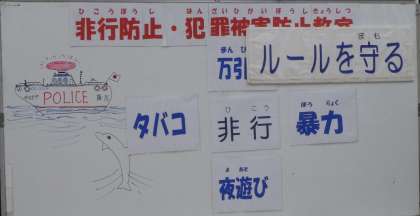 ひこうぼうし はんざいひがいぼうしきょうしつ
非行防止・犯罪被害防止教室
まんび
万引
まも
ルールを守る
POLICE
タバコ
ひこう
非行
ぼうりょく
暴力
よあそ
夜遊び